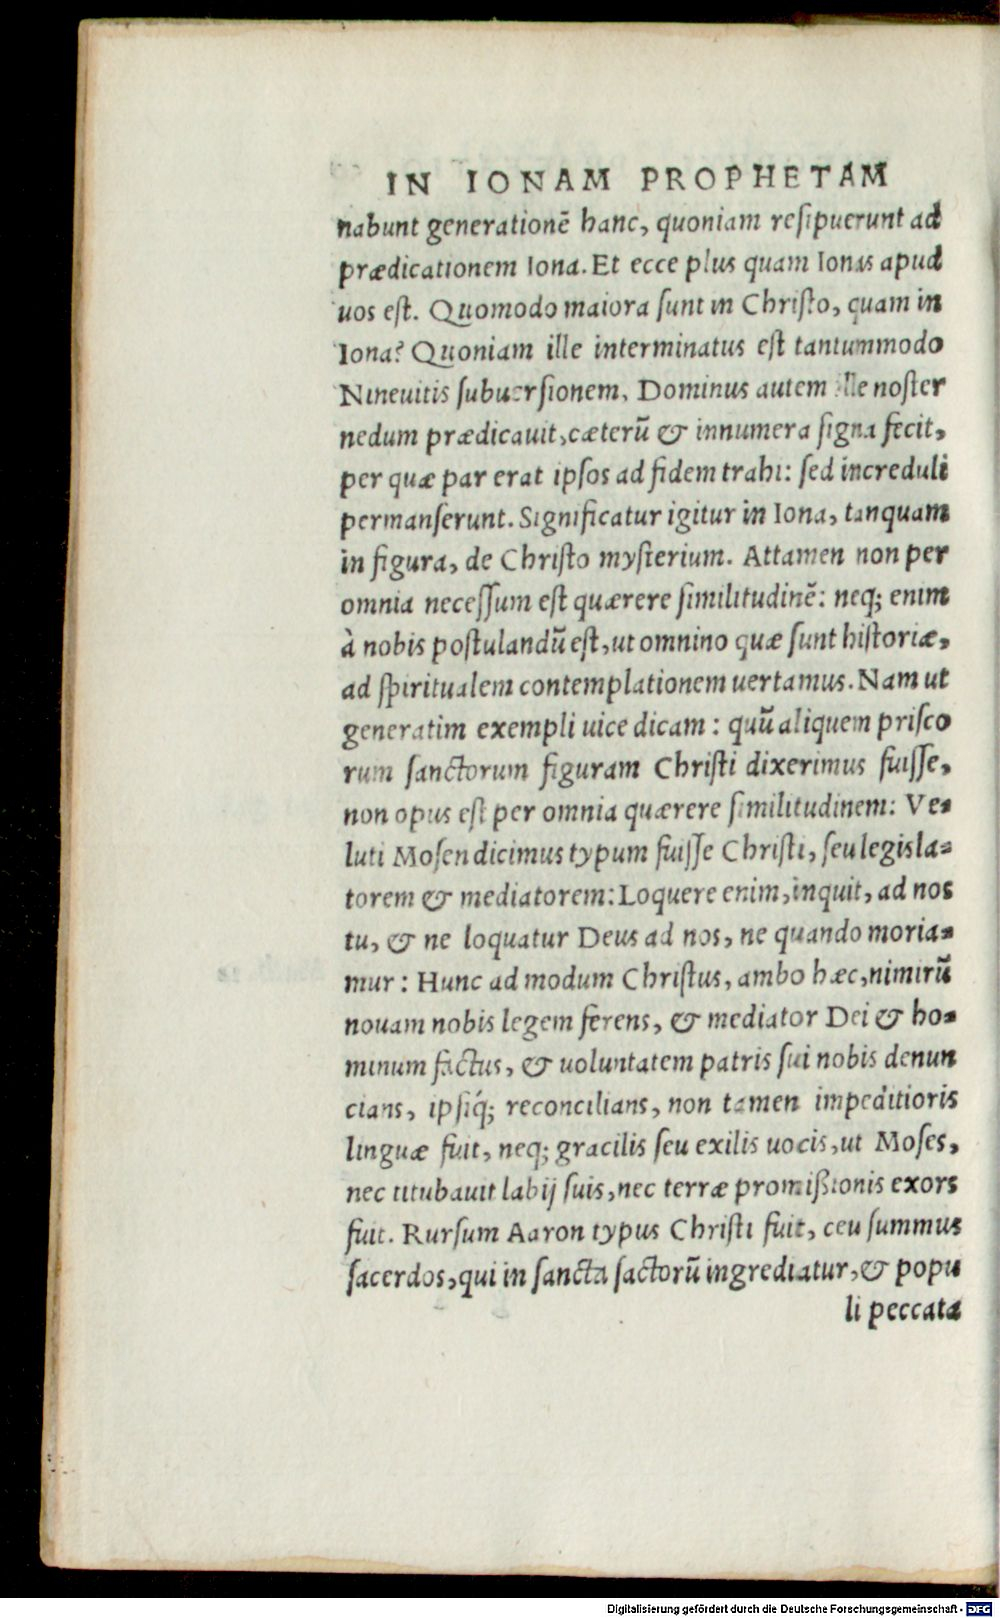 IN IONAM PROPHETAM
nabunt generationẽ hanc, quoniam resipuerunt ad
prædicationem Iona. Et ecce plus quam Ionas apud
uos est. Quomodo maiora sunt in Christo, quam in
Iona? Quoniam ille interminatus est tantummodo
Nineuitis subuersionem, Dominus autem ille noster
nedum prædicauit, cæterũ & innumera signa fecit,
per quæ par erat ipsos ad fidem trahi: sed increduli
permanserunt. Significatur igitur in Iona, tanquam
in figura, de Christo mysterium. Attamen non per
omnia necessum est quærere similitudinẽ: neq; enim
à nobis postulandũ est, ut omnino quæ sunt historiæ,
ad spiritualem contemplationem uertamus. Nam ut
generatim exempli uice dicam: quũ aliquem prisco
rum sanctorum figuram Christi dixerimus fuisse,
non opus est per omnia quærere similitudinem: Ve-
luti Mosen dicimus typum fuisse Christi, seu legisla-
torem & mediatorem: Loquere enim, inquit, ad nos
tu, & ne loquatur Deus ad nos, ne quando moria-
mur: Hunc ad modum Christus, ambo hæc, nimirũ
nouam nobis legem ferens, & mediator Dei & ho-
minum factus, & uoluntatem patris sui nobis denun
cians, ipsiq́; reconcilians, non tamen impeditioris
linguæ fuit, neq; gracilis seu exilis uocis, ut Moses,
nec titubauit labij suis, nec terræ promißionis exors
fuit. Rursum Aaron typus Christi fuit, ceu summus
sacerdos, qui in sancta sactorũ ingrediatur, & popu
li peccata
Digitalisierung gefördert durch die Deutsche Forschungsgemeinschaft - DFG